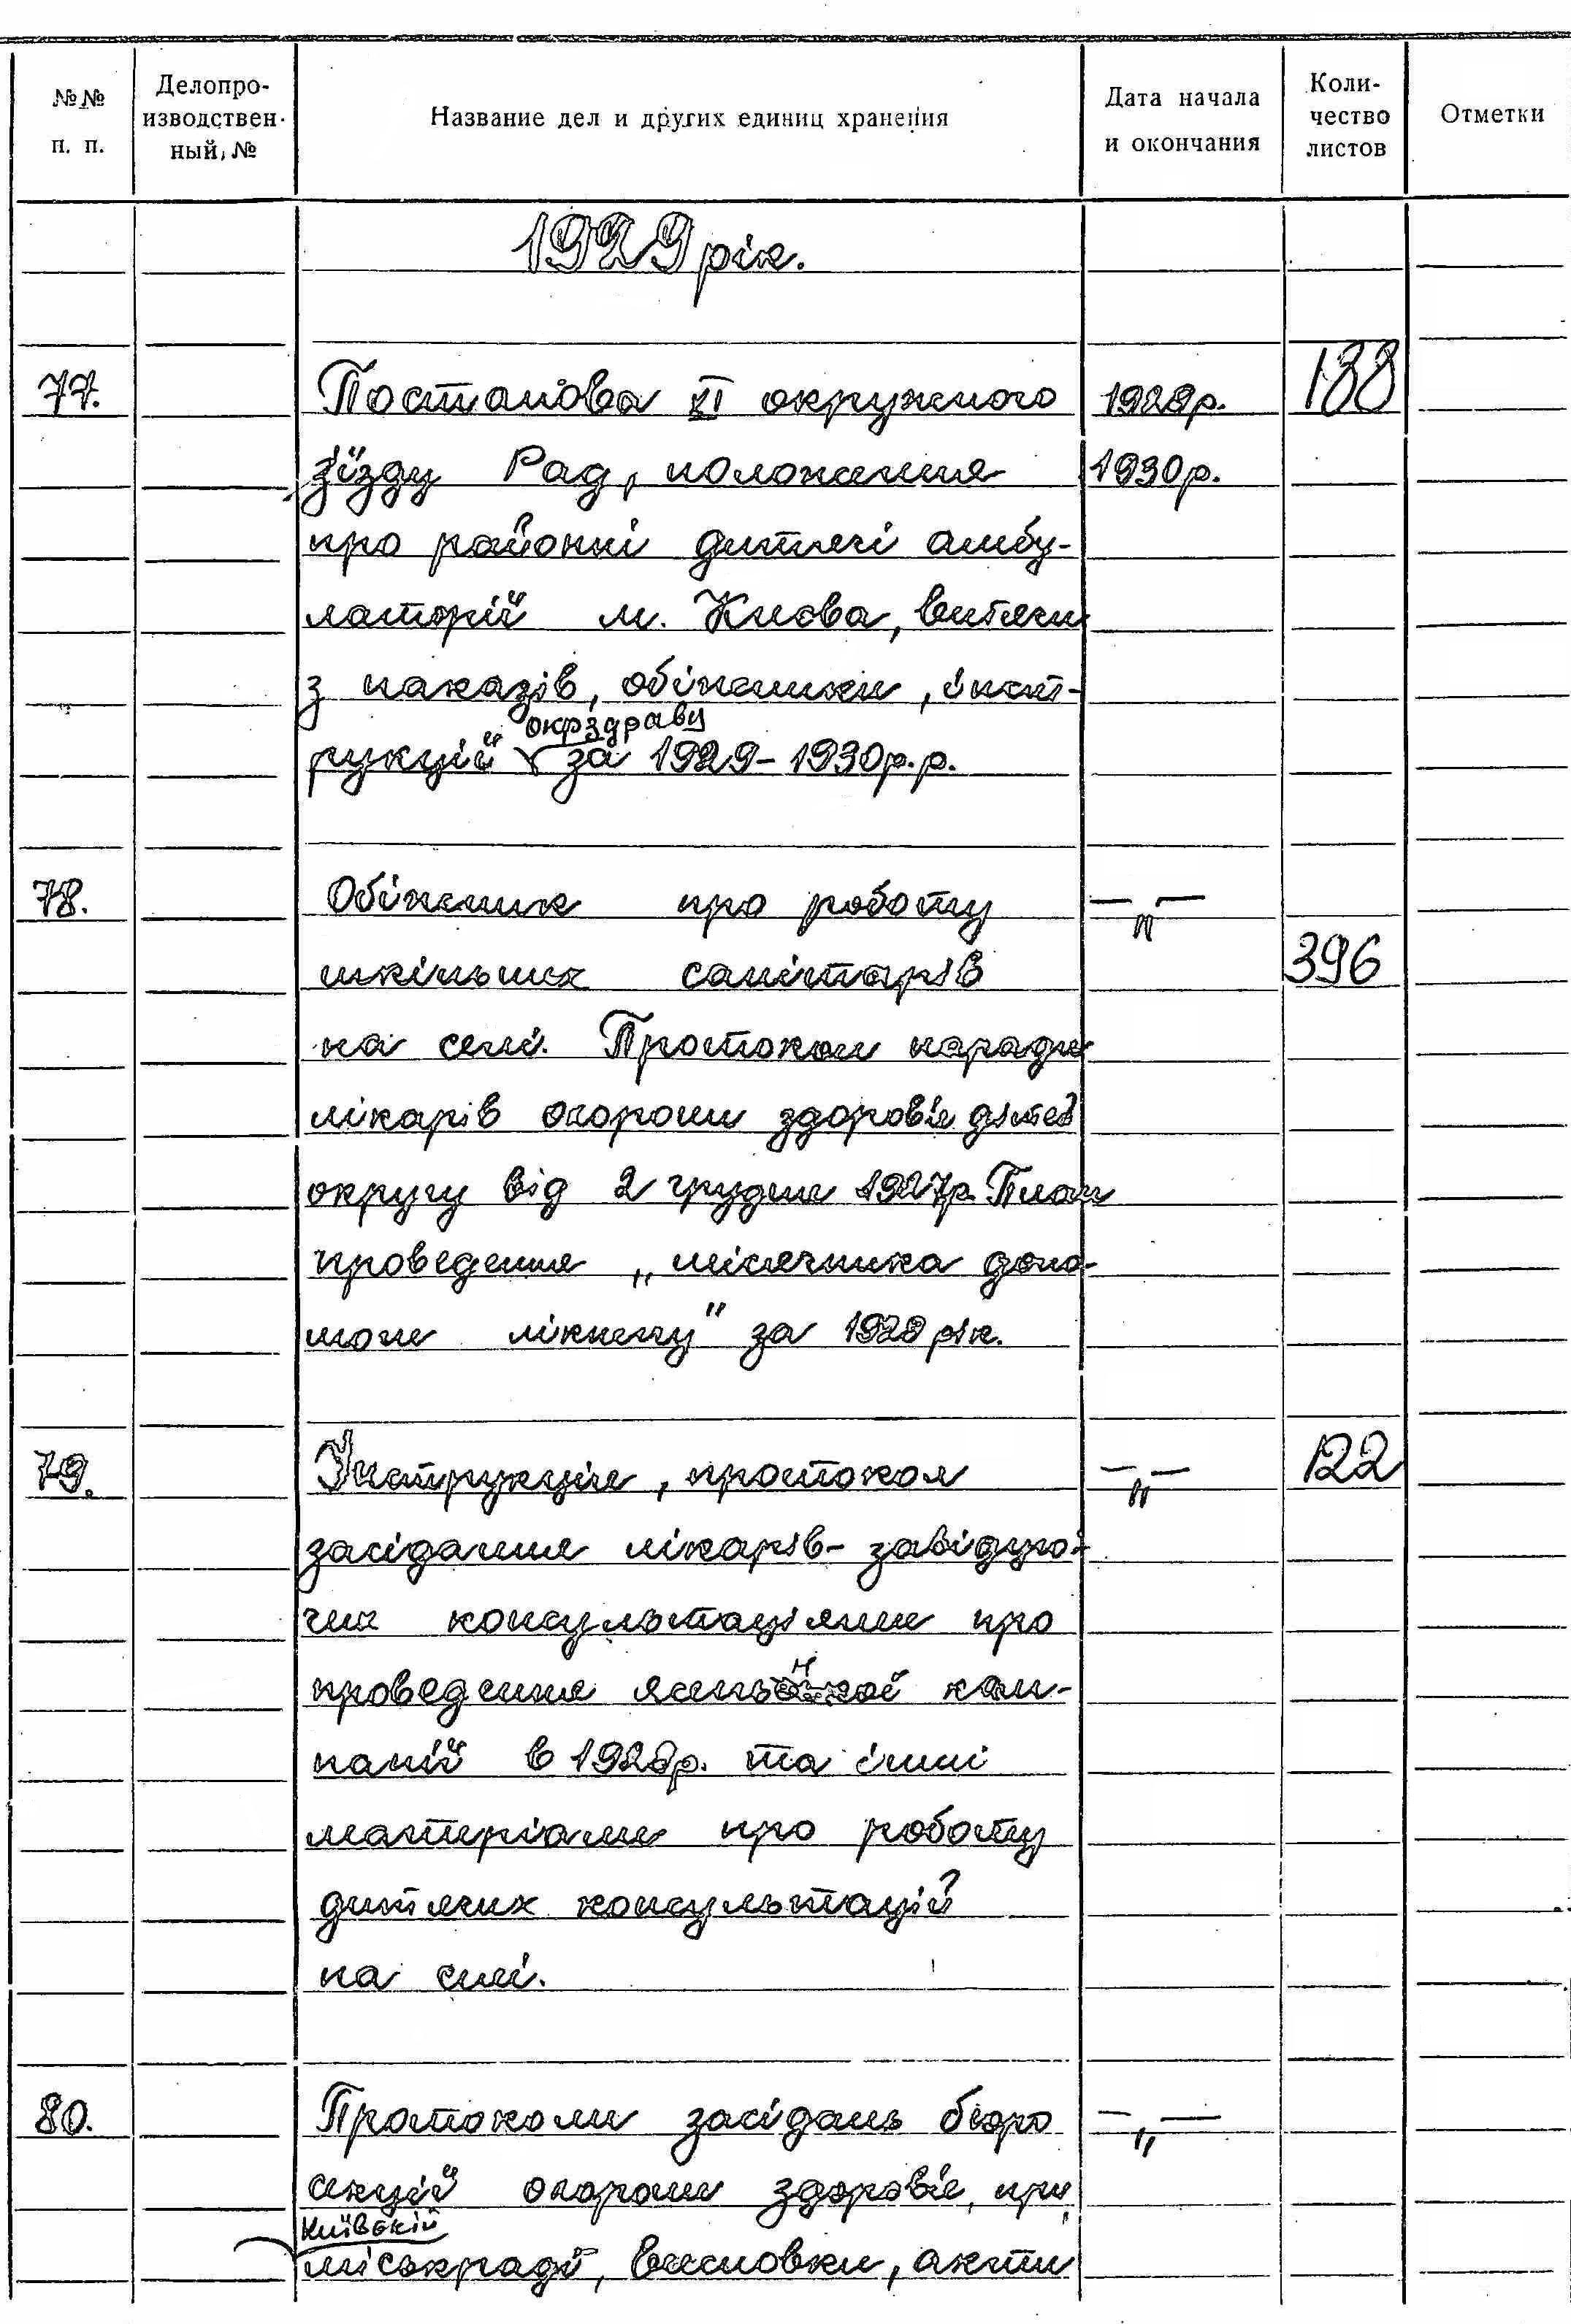 №№ п. п.
Делопро-
изводствен-
ный, №
Название дел и других единиц хранения
Дата начала
и окончания
Коли-
чество
листов
Отметки
1929 рік.
77. Постанова XI окружного 1928р. 188
з'їзду Рад, положення 1930р.
про районні дитячі амбу-
латорії м. Києва, витяги
з наказів, обіжники, інст-
окрздраву
рукції за 1929-1930р.р.
78. Обіжник про роботу —"—
шкільних санітарів 396
на селі. Протокол наради
лікарів охорони здоров'я дітей
округу від 2 грудня 1927р. План
проведення „місячника допо-
моги лікнепу" за 1928 рік.
79. Інструкція, протокол —"— 122
засідання лікарів-завідую-
чих консультаціями про
проведення ясельної кам-
панії в 1928р. та інші
матеріали про роботу
дитячих консультацій
на селі.
80. Протоколи засідань бюро —"—
секції охорони здоров'я, при
Київській
міськраді, висновки, акти